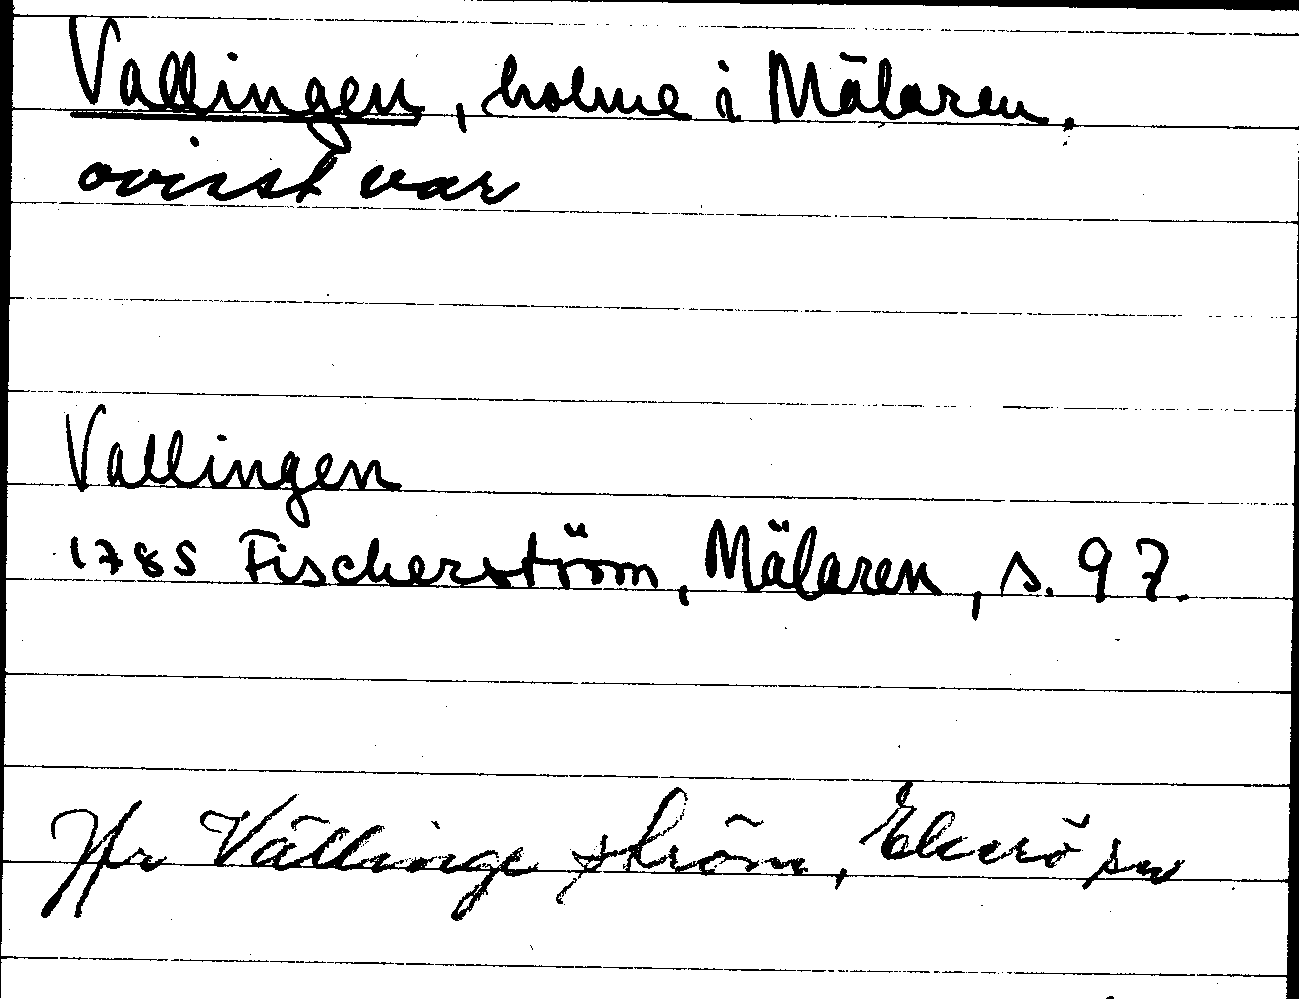 Vallingen, holme i Mälaren.
ovisst var
Vallingen
1785 Fischerström, Mälaren, s. 97.
Jfr Vällinge ström, Ekerö sn